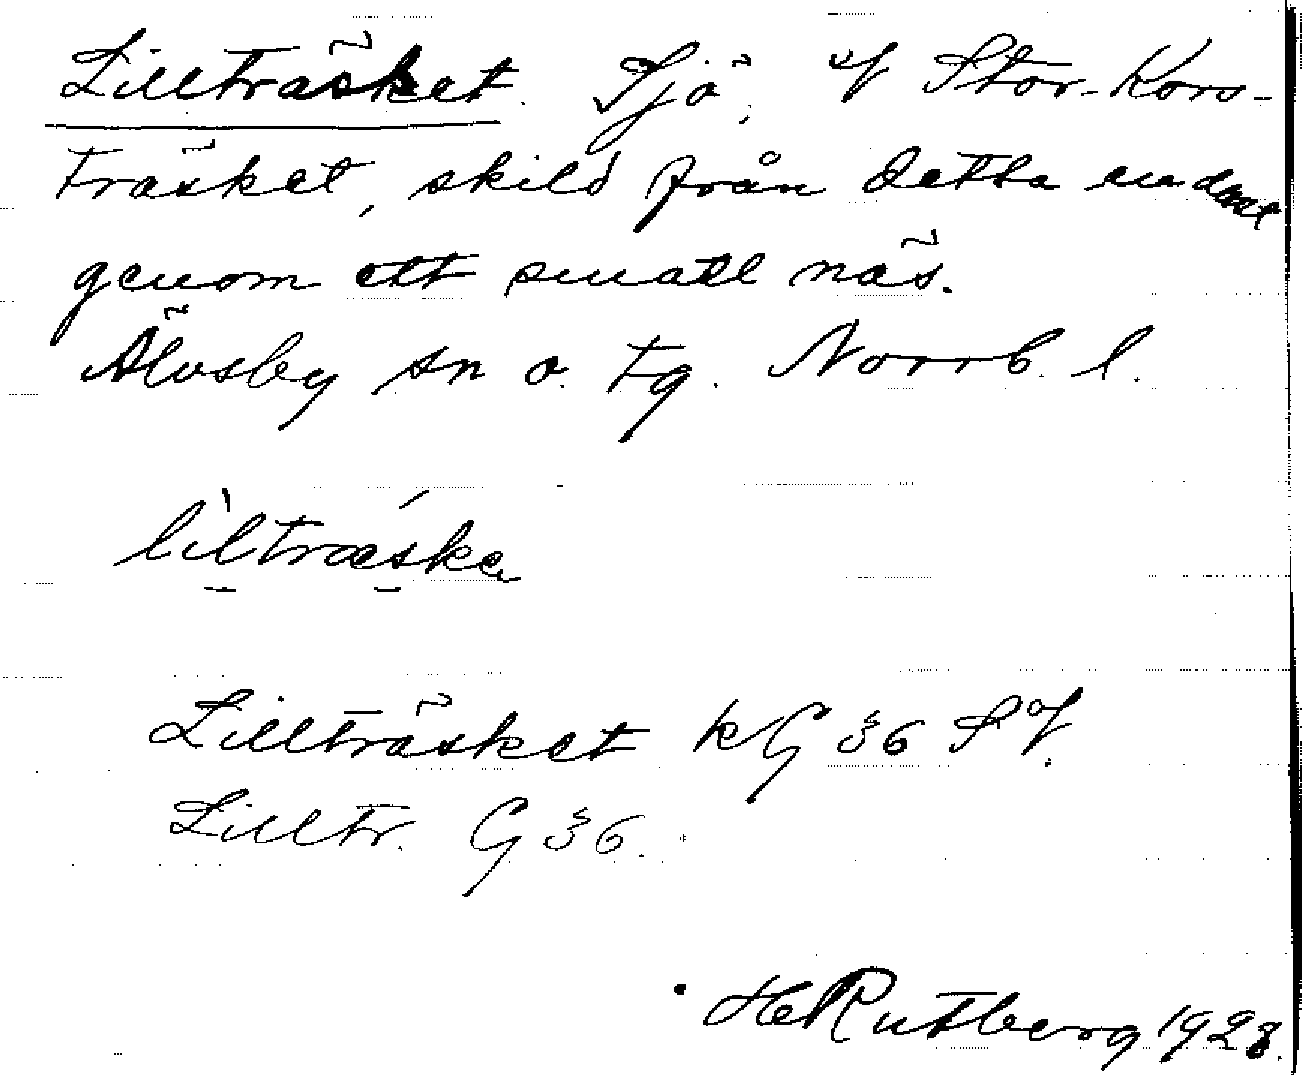 Lillträsket. Sjö, v/ Stor-Kors-
träsket, skild från detta endast
genom ett smalt näs.
Älvsby sn o. tg. Norrb. l.
lìltrǽske
Lillträsket kG 36 SV.
Lilltr. G 36.
HelRutberg 1928.